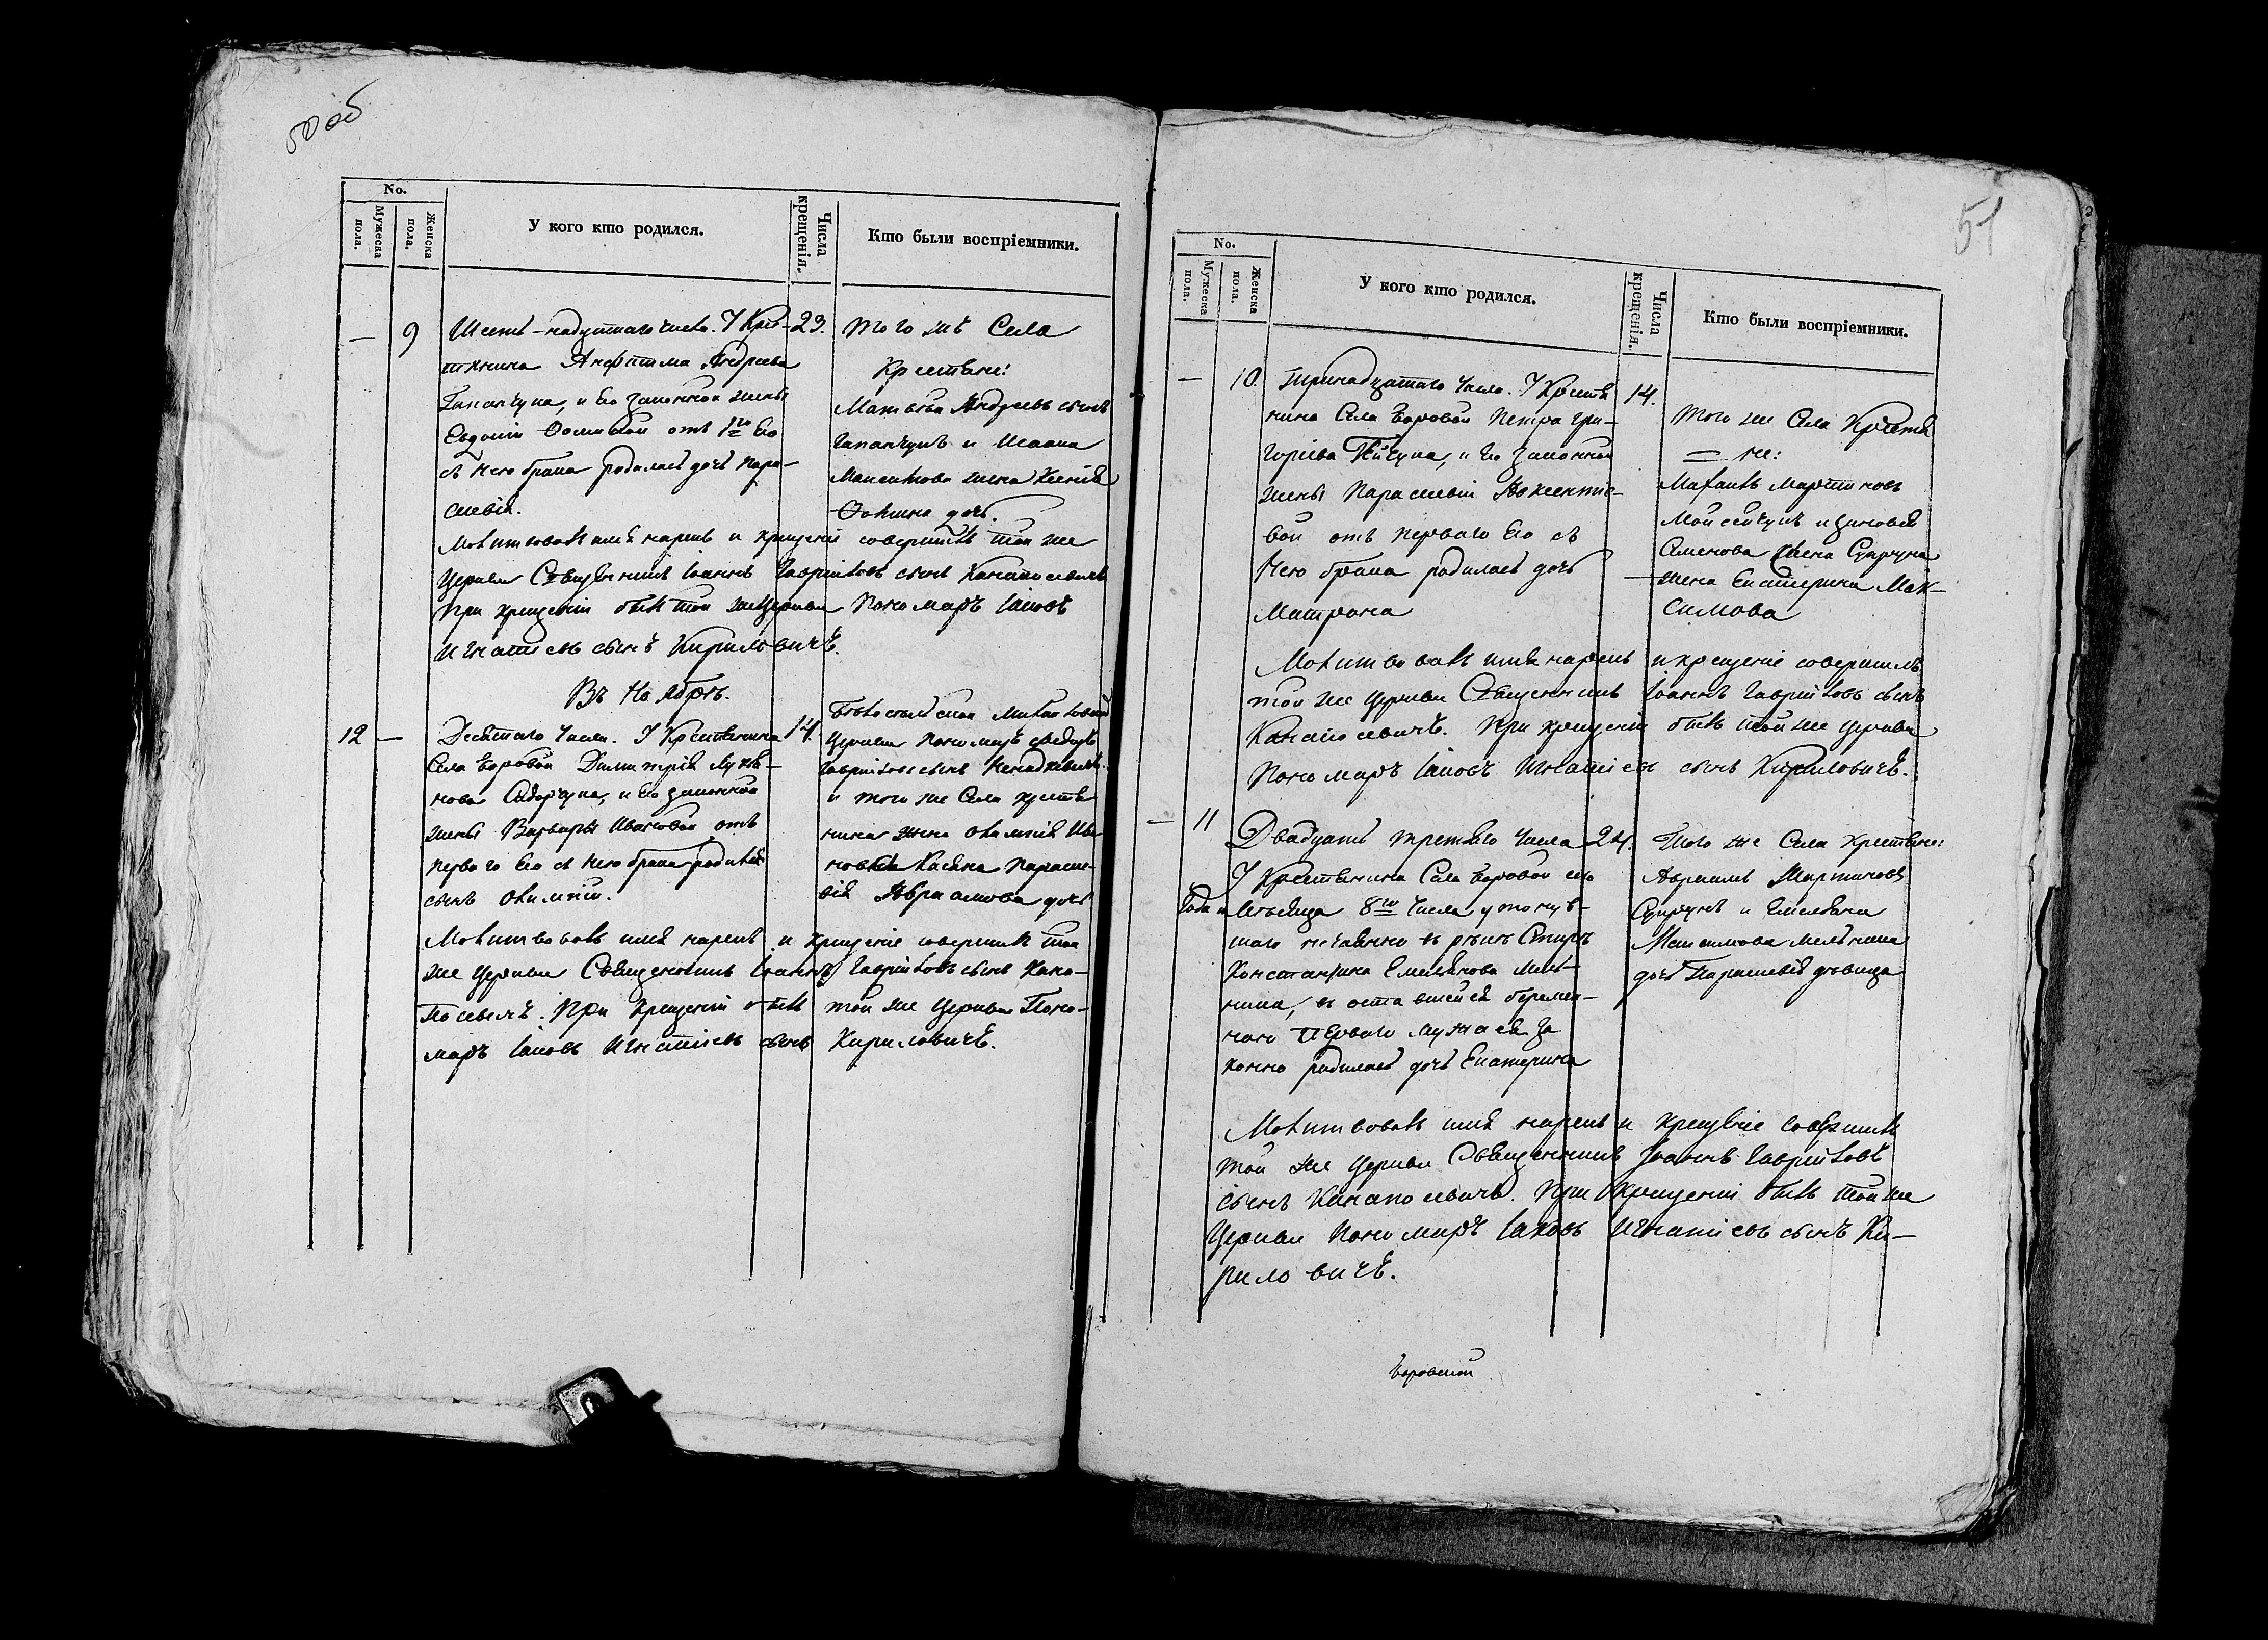 50 об
No.
Мужеска пола.
Женска пола.
У кого кто родился.
Числа крещенія.
Кто были воспріемники.
— 9 Шесть-надцятаго числа. У Кре- 23.
стянина Анфтима Андреева
Гапанчука, и Его законной жены
Евдокіи Фоминой отъ 1го Его
съ Нею брака родилась дочь Пара-
скевія.
того жъ Села
Крестяне:
Матвѣй Андреевъ сынъ
Гапанчукъ и Исаака
Максимова жена Ксенія
Фомина дочь.
Молитвовалъ имя нарекъ и крещеніе совершилъ той же
Церкви Священникъ Іоаннъ Гавріиловъ сынъ Канапосевичъ
При крещеніи былъ той же Церкви Пономаръ Іаковъ
Игнатіевъ сынъ Кириловичъ.
Въ Ноябрѣ.
12 — Десятаго Числа. У Крестянина 14.
Села Боровой Димитрія Лукя-
нова Сидорчука, и Его законной
жены Варвары Ивановой отъ
перваго Его съ Нею брака родился
сынъ Олимпій.
Михайловской
Церкви Пономаръ Ѳеодоръ
Гавріиловъ сынъ
и того же Села крестя-
нина жена
Параске-
вія Авраамова дочь
Молитвовалъ имя нарекъ и крещеніе совершилъ той
же Церкви Священникъ Іоаннъ Гавріиловъ сынъ Кана-
посевичъ. При Крещеніи былъ той же Церкви Поно-
маръ Іаковъ Игнатіевъ сынъ Кириловичъ.
51
No.
Мужеска пола.
Женска пола.
У кого кто родился.
Числа крещенія.
Кто были воспріемники.
— 10. Тринадцятаго Числа. У Крестя 14.
нина Села Боровой Петра Гри-
горіева и Его законной
жены Параскевіи Авксентіе-
вой отъ перваго Его съ
Нею брака родилась дочь
Матрона
Того же Села Крестя
= не:
Мартиновъ
Мойсейчукъ и
Семенова Супруна
жена Екатерина Мак-
симова
Молитвовалъ имя нарекъ и крещеніе совершилъ
той же Церкви Священникъ Іоаннъ Гавріиловъ сынъ
Канапосевичъ. При крещеніи былъ той же Церкви
Пономаръ Іаковъ Игнатіевъ сынъ Кириловичъ.
— 11 Двадцать третяго Числа 24.
У Крестянина Села Боровой сего
Года и Мѣсяца 8го Числа утонув-
шаго нечаянно въ рѣкѣ Стыръ
Константина Емеліянова Мель-
ника, въ оставшейся беремен-
ною перваго мужа за
конно родилась дочь Екатерина
Того же Села Крестяне:
Мартиновъ
Супрунъ и Емеліяна
Максимова Мельника
дочь Параскевія дѣвица
Молитвовалъ имя нарекъ и крещеніе совершилъ
той же Церкви Священникъ Іоаннъ Гавріиловъ
сынъ Канапосевичъ. При Крещеніи былъ той же
Церкви Пономаръ Іаковъ Игнатіевъ сынъ Ки-
риловичъ.
Боровской